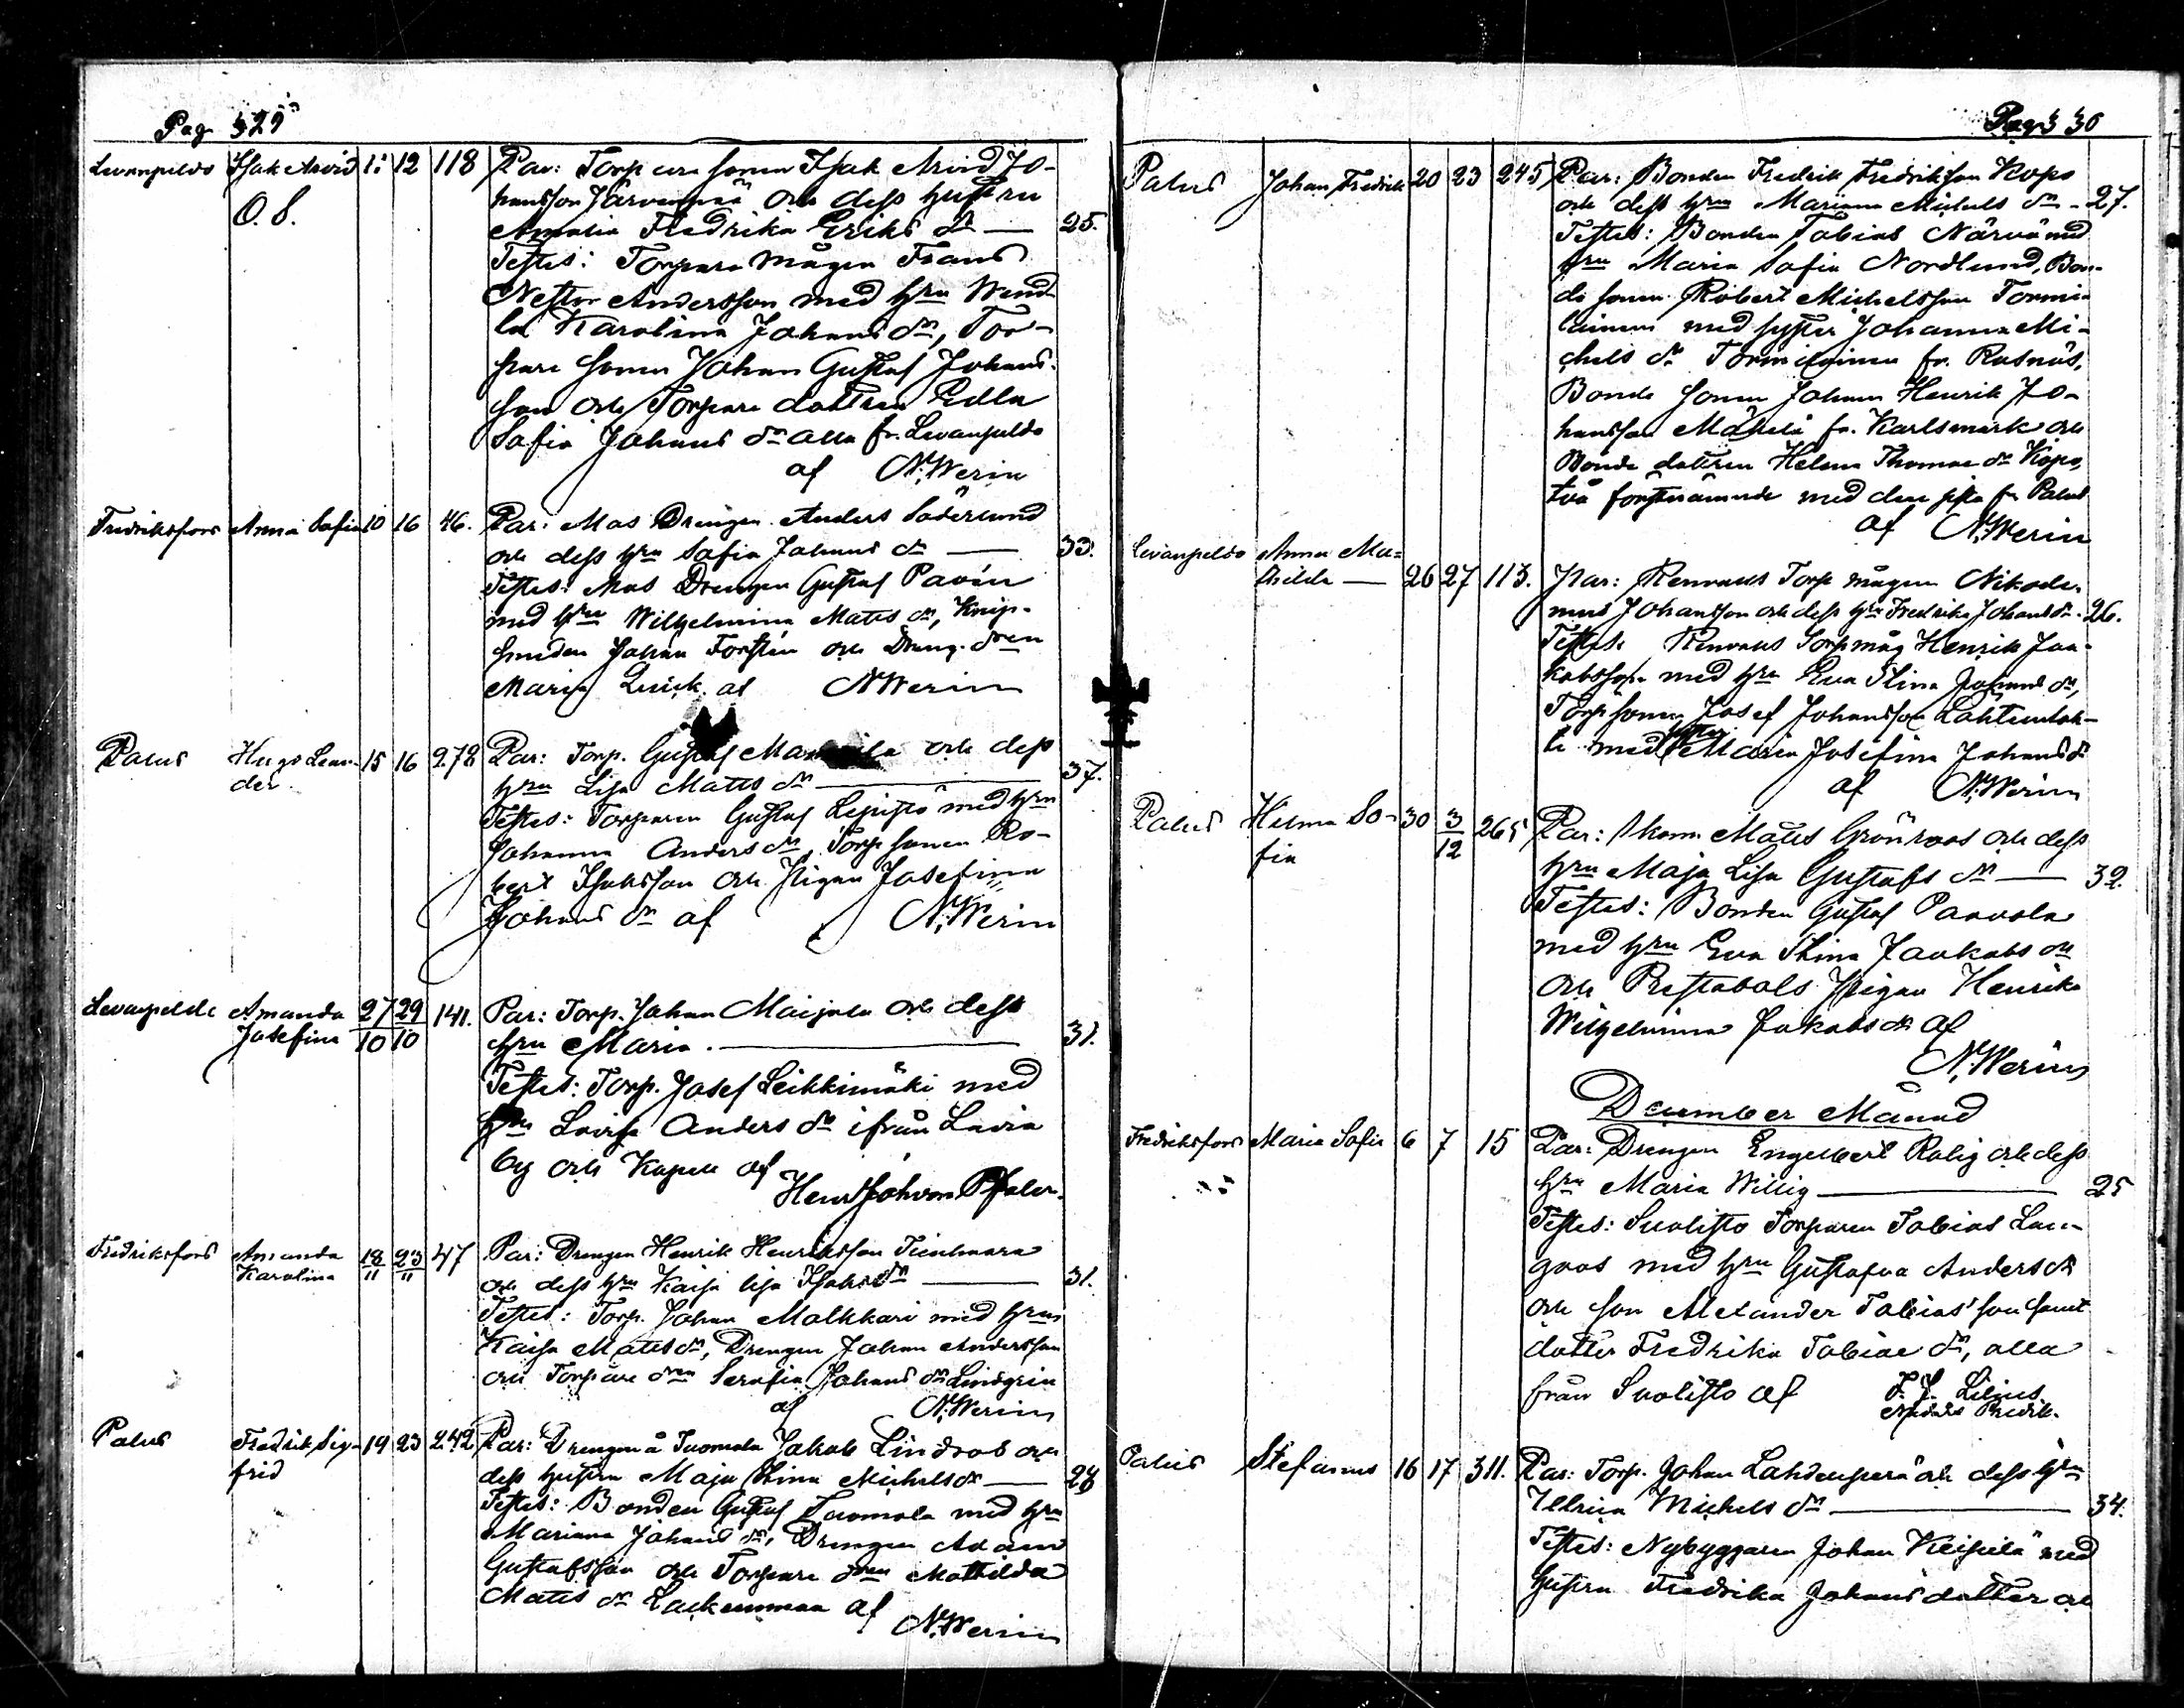 Pag 329
Levanpelds Isak Arvid 12 118 Par: Torpare sonen Isak Arvid Jo-
O. S. hansson Järvenpää och dess hustru
Amalia Fredrika Eriks dr 25.
Testes: Torpare mågen Frans
Nestor Andersson med hru Wend-
la Karolina Johans dr, Tor-
pare sonen Johan Gustaf Johans-
son och Torpare dottren Edla
Sofia Johans dr alla fr. Levanpelds
af N. Werin
Fredriksfors Anna Sofia 10 16 46. Par: Mas Drengen Anders Söderlund
och dess hru Sofia Johans dr 33.
Testes: Mas Drengen Gustaf Pavén
med hru Wilhelmina Mats dr, Knip-
smeden Johan Forstén och Dreng. dren
Maria Quick af N Werin
Palus Hugo Lean- 15 16 272 Par: Torp. Gustaf och dess
der hru Lisa Matts dr 37.
Testes: Torparen Gustaf Lepistö med hru
Johanna Anders dr, Torp sonen Ro-
bert Isaksson och Pigan Josefina
Johans dr af N. Werin
Levanpelds Amanda 27/10 29/10 141. Par: Torp. Johan Maijala och dess
Josefina hru Maria. 31.
Testes: Torp. Josef Leikkimäki med
hru Lovisa Anders dr ifrån Lavia
by och Kapell af
Henr Joh von Pfaler.
Fredriksfors Amanda 18/11 23/11 47 Par: Drengen Henrik Henriksson Tienhaara
Karolina och dess hru Kaisa Lisa Isaks dr 31.
Testes: Torp. Johan Malkkari med hru
Kaisa Mats dr, Drengen Johan Andersson
och Torpare dren Serafia Johans dr Lindgrén
af N. Werin
Palus Fredrik Sig- 19 23 242 Par: Drengen å Tuomola Jakob Lindroos och
frid dess hustru Maja Stina Michels dr 28
Testes: Bonden Gustaf Tuomola med hru
Mariana Johans dr, Drengen Adam
Gustafsson och Torpare dren Mathilda
Mats dr af
N. Werin
Pag 330
Palus Johan Fredrik 20 23 245 Par: Bonden Fredrik Fredriksson Kopo
och dess hru Mariana Michels dr 27.
Testes: Bonden Tobias Närvä med
hru Maria Sofia Nordlund, Bon-
de sonen Robert Michelsson Tormi-
lainen med syster Johanna Mi-
chels dr Tormilainen fr. Rosnäs,
Bonde sonen Johan Henrik Jo-
hansson Mäkelä fr. Karlsmark och
Bonde dottren Helena Thomae dr Kopo,
två förstnämnde med den sista fr Palus
af N. Werin
Levanpelds Anna Ma-
thilda 26 27 113. Par: Renvalls Torp mågen Nikode-
mus Johansson och dess hru Fredrika Johans dr 26.
Testes: Renvalls Torp måg Henrik Jaa-
kobsson med hru Eva Stina Johans dr,
Torp sonen Josef Johansson Lahtenlah-
ti med syster Maria Josefina Johans dr
af N. Werin
Palus Hilma So- 30 3/12 265 Par: Skom. Mats Grönroos och dess
fia hru Maja Lisa Gustafs dr 32.
Testes: Bonden Gustaf Paavola
med hru Eva Stina Jaakobs dr
och Prestabols Pigan Henrika
Wilhelmina Jakobs dr af
N. Werin
December Månad
Fredriksfors Maria Sofia 6 7 15 Par: Drengen Engelbert Rolig och dess
hru Maria Willig 25
Testes: Suolisto Torparen Tobias Lau-
goos med hru Gustafva Anders dr
och son Alexander Tobias' son samt
dotter Fredrika Tobiae dr, alla
från Suolisto af F. J. Lilius
Nödhs Predik.
Palus Stefanus 16 17 311. Par: Torp. Johan Lahdenperä och dess hru
Ulrica Michels dr 34.
Testes: Nybyggaren Johan Keisilä med
hustru Fredrika Johans dotter och